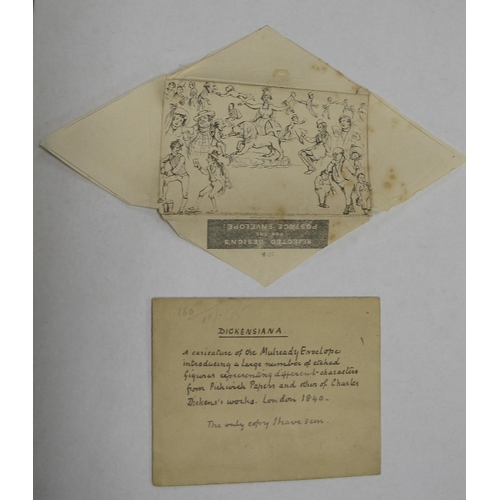 REJECTED DESIGNS
FOR THE
POSTAGE ENVELOPE
DICKENSIANA.
A caricature of the Mulready Envelope
introducing a large number of etched
figures representing different characters
from Pickwick Papers and other of Charles
Dickens's works. London 1840.
The only copy I have seen.